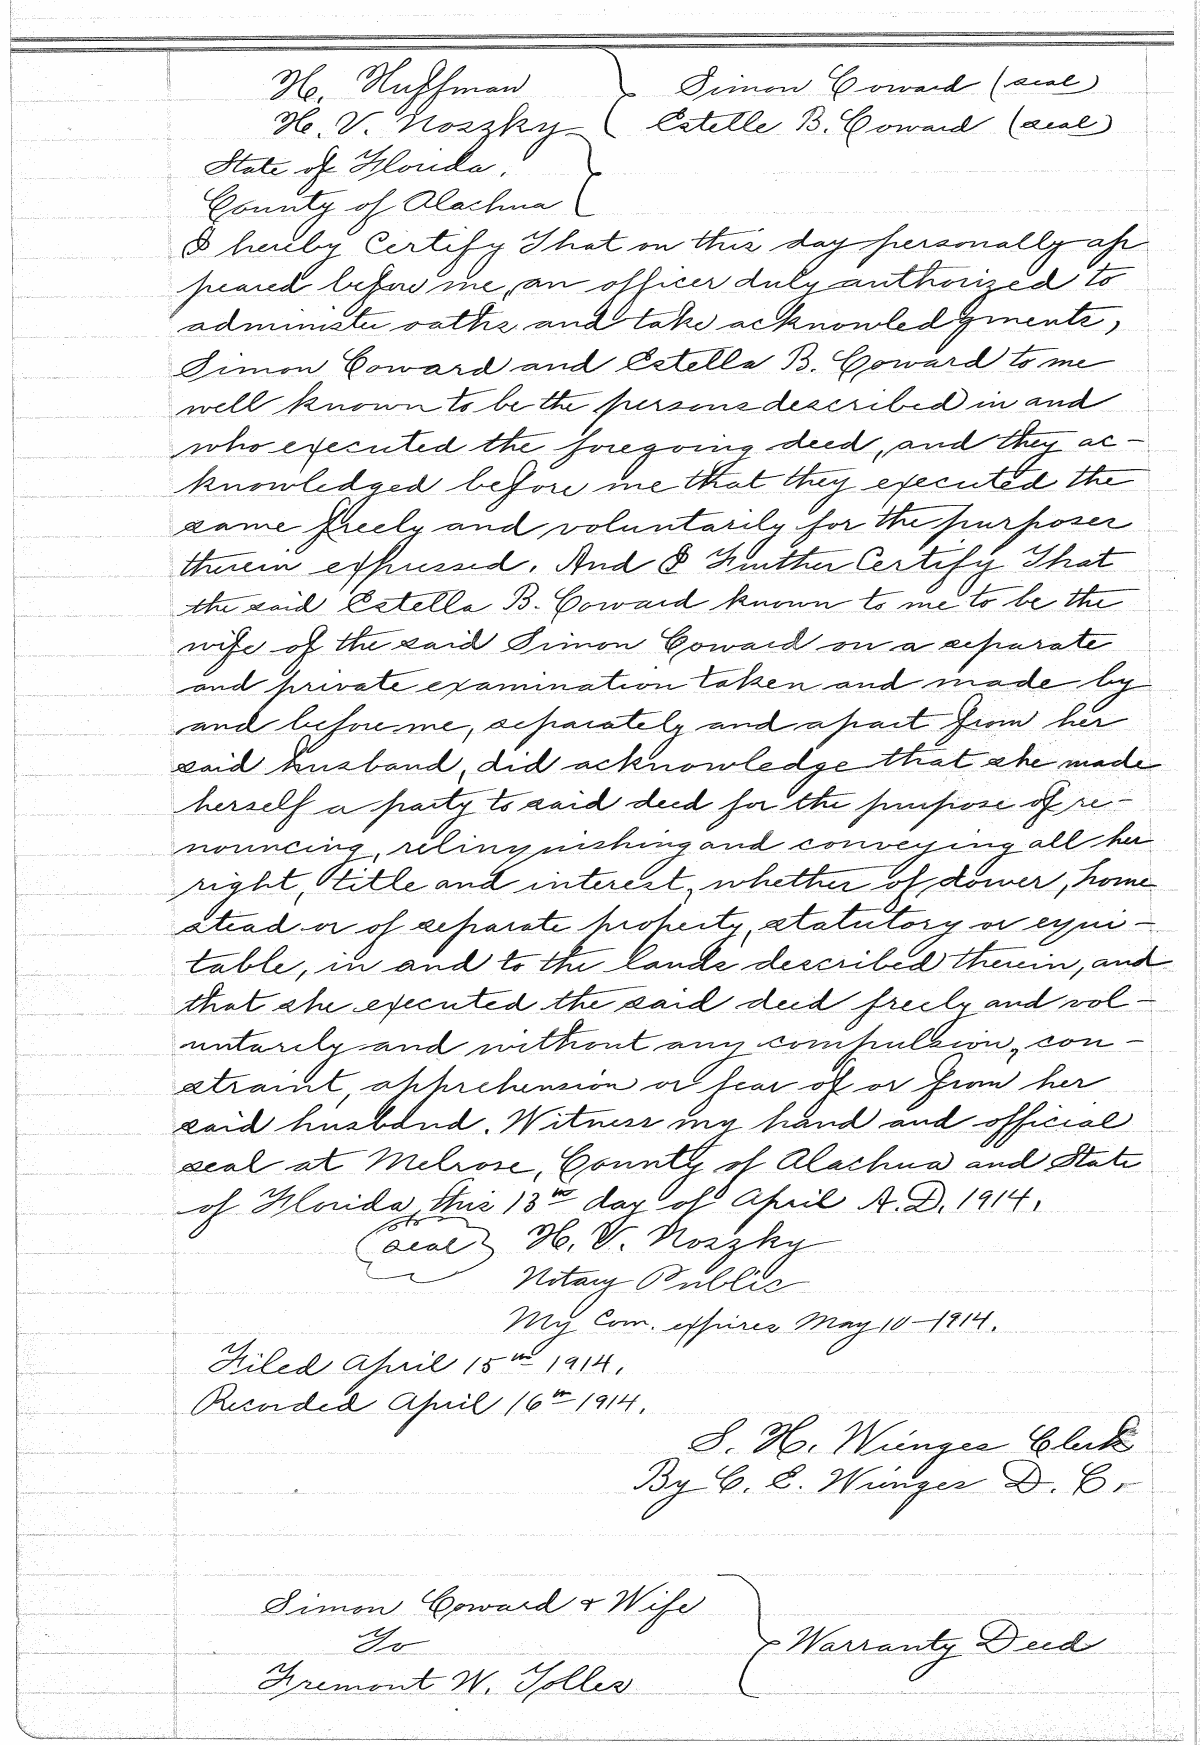 H. Huffman } Simon Coward (seal)
H. V. Noszky } Estelle B. Coward (seal)
State of Florida, }
County of Alachua }
I hereby Certify That on this day personally ap
peared before me, an officer duly authorized to
administer oaths and take acknowledgments,
Simon Coward and Estella B. Coward to me
well known to be the persons described in and
who executed the foregoing deed, and they ac-
knowledged before me that they executed the
same freely and voluntarily for the purposes
therein expressed. And I Further Certify That
the said Estella B. Coward known to me to be the
wife of the said Simon Coward on a separate
and private examination taken and made by
and before me, separately and apart from her
said husband, did acknowledge that she made
herself a party to said deed for the purpose of re-
nouncing, relinquishing and conveying all her
right, title and interest, whether of dower, home
stead or of separate property, statutory or equi-
table, in and to the lands described therein, and
that she executed the said deed freely and vol-
untarely and without any compulsion, con-
straint, apprehension or fear of or from her
said husband. Witness my hand and official
seal at Melrose, County of Alachua and State
of Florida, this 13th day of April A.D. 1914.
(seal) H. V. Noszky
Notary Public
My Com. expires May 10-1914.
Filed April 15th 1914.
Recorded April 16th 1914.
S. H. Wienges Clerk
By C. E. Wienges D. C.
Simon Coward & Wife
To } Warranty Deed
Fremont W. Tolles